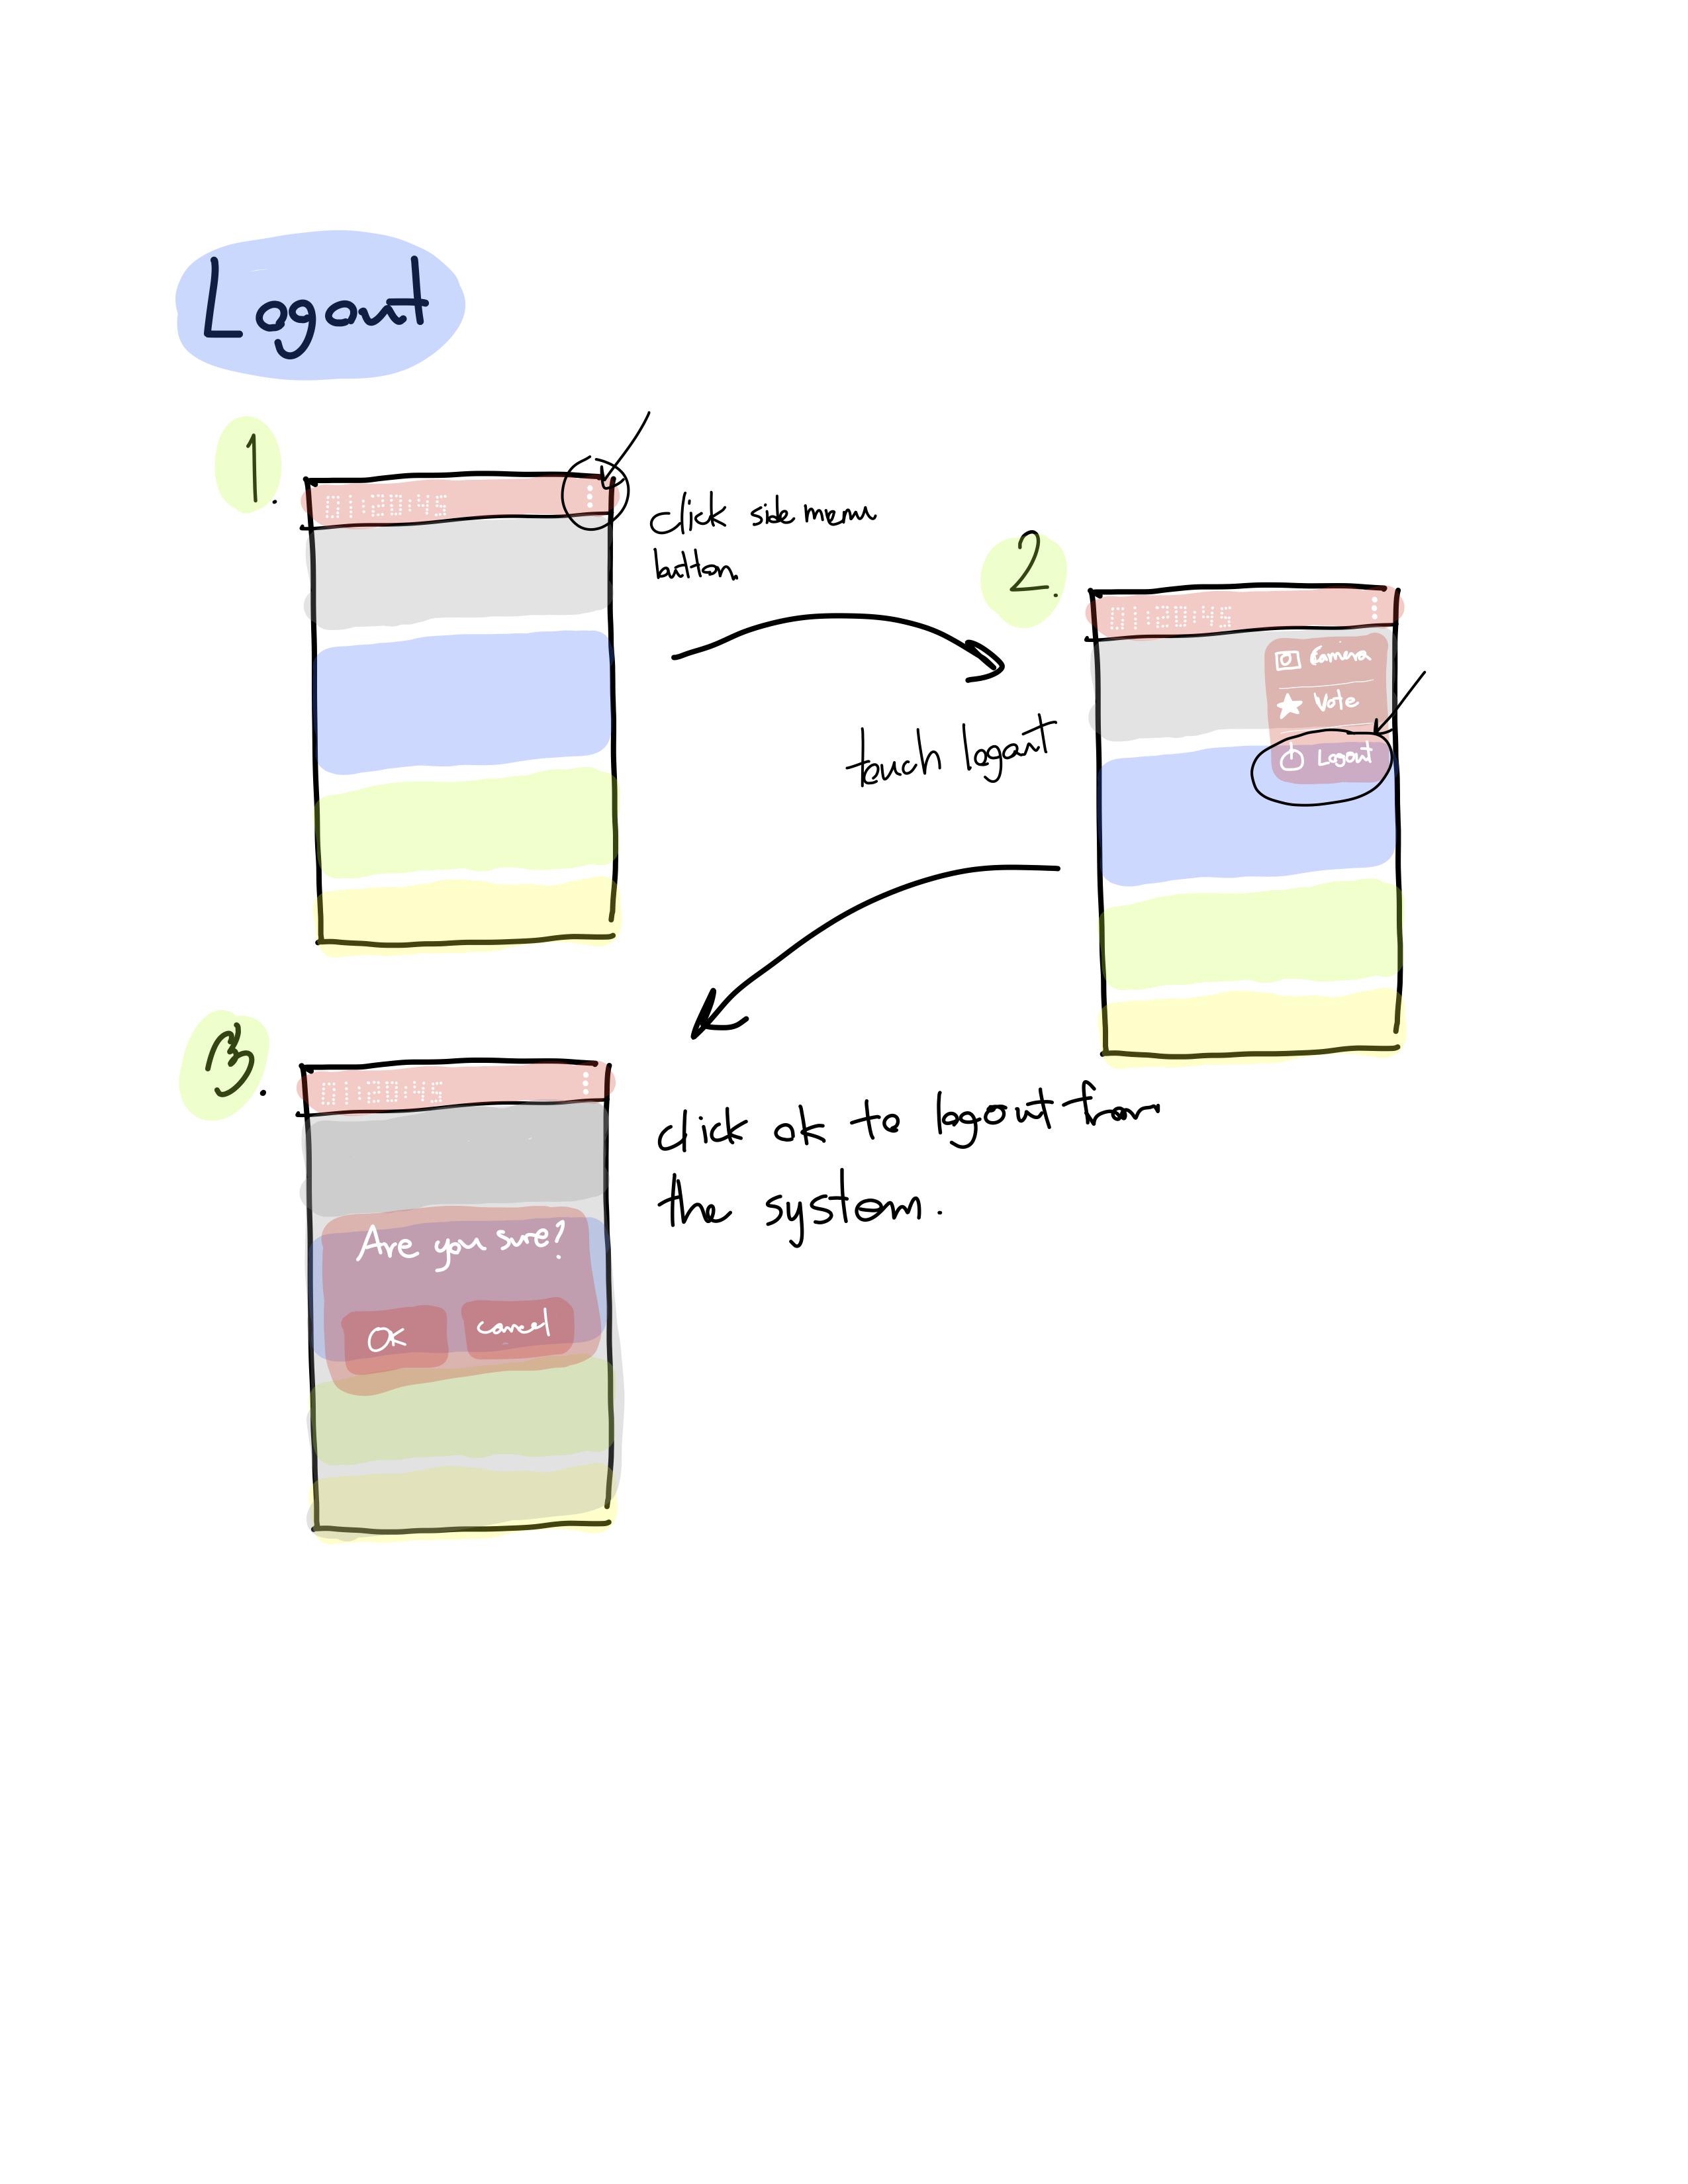 Logout
1.
01:20:45
click side menu
button
2.
01:20:45
Camera
Vote
Logout
touch logout
3.
01:20:45
Are you sure?
OK
cancel
click ok to logout from
the system.